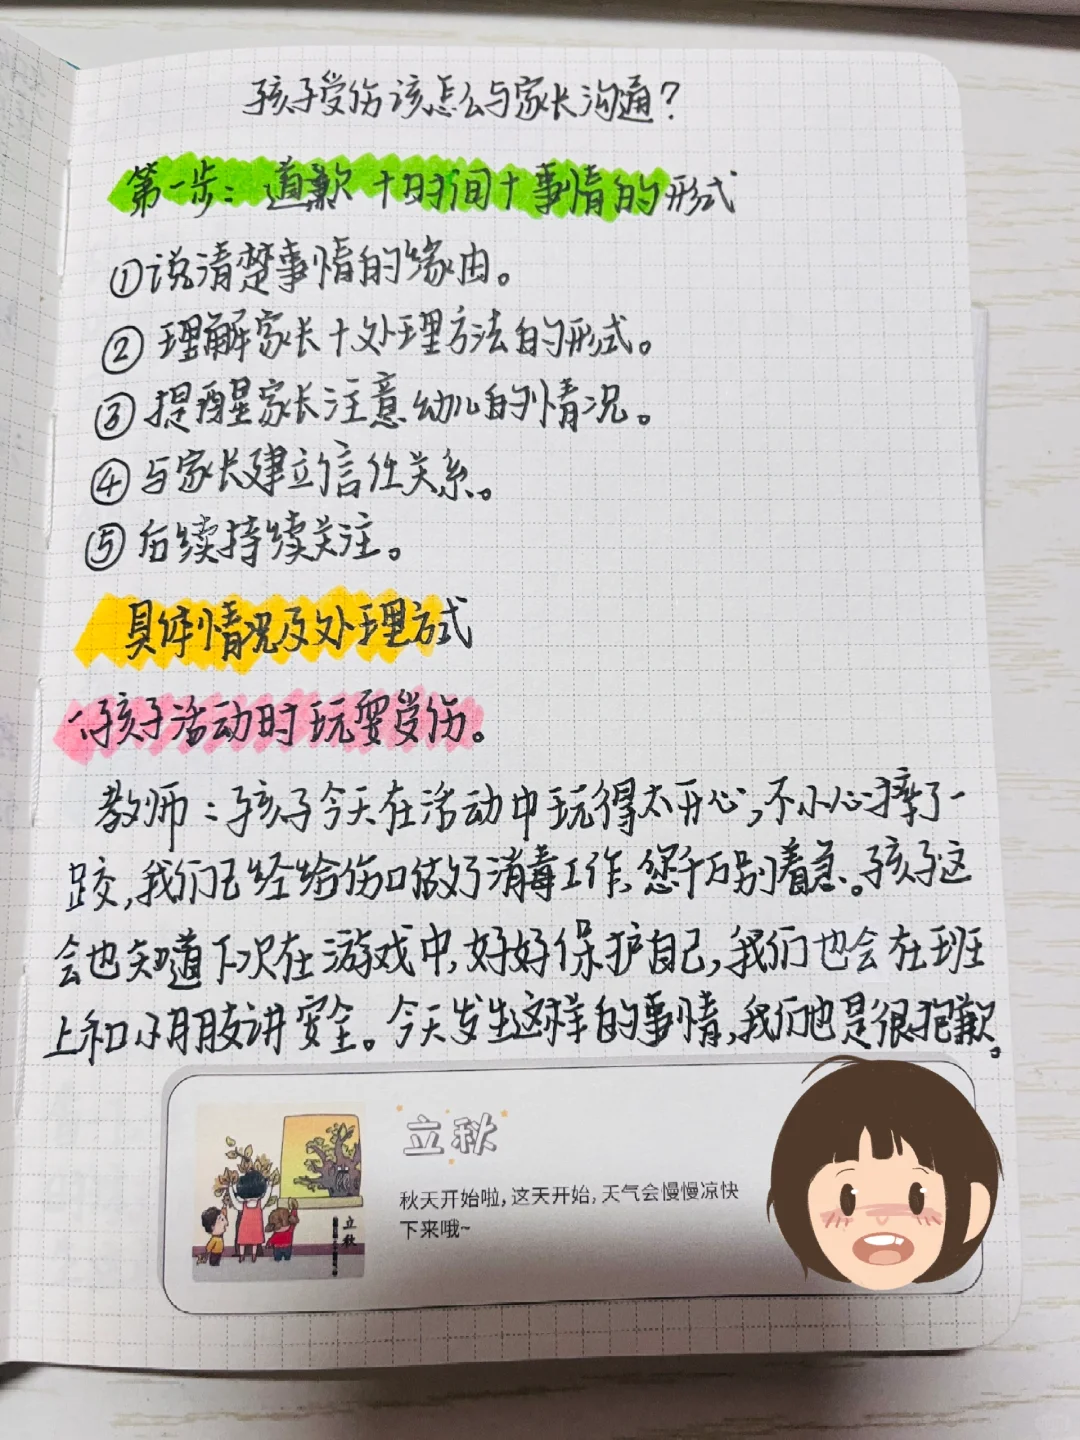 孩子受伤该怎么与家长沟通?
第一步:道歉+时间+事情的形式
①说清楚事情的缘由。
②理解家长+处理方法的形式。
③提醒家长注意幼儿的情况。
④与家长建立信任关系。
⑤后续持续关注。
具体情况及处理方式
一、孩子活动时玩耍受伤。
教师:孩子今天在活动中玩得太开心,不小心摔了一
跤,我们已经给伤口做好消毒工作,您千万别着急。孩子这
会也知道下次在游戏中,好好保护自己,我们也会在班
上和小朋友讲安全。今天发生这样的事情,我们也是很抱歉。
立秋
秋天开始啦,这天开始,天气会慢慢凉快
下来哦~
立秋